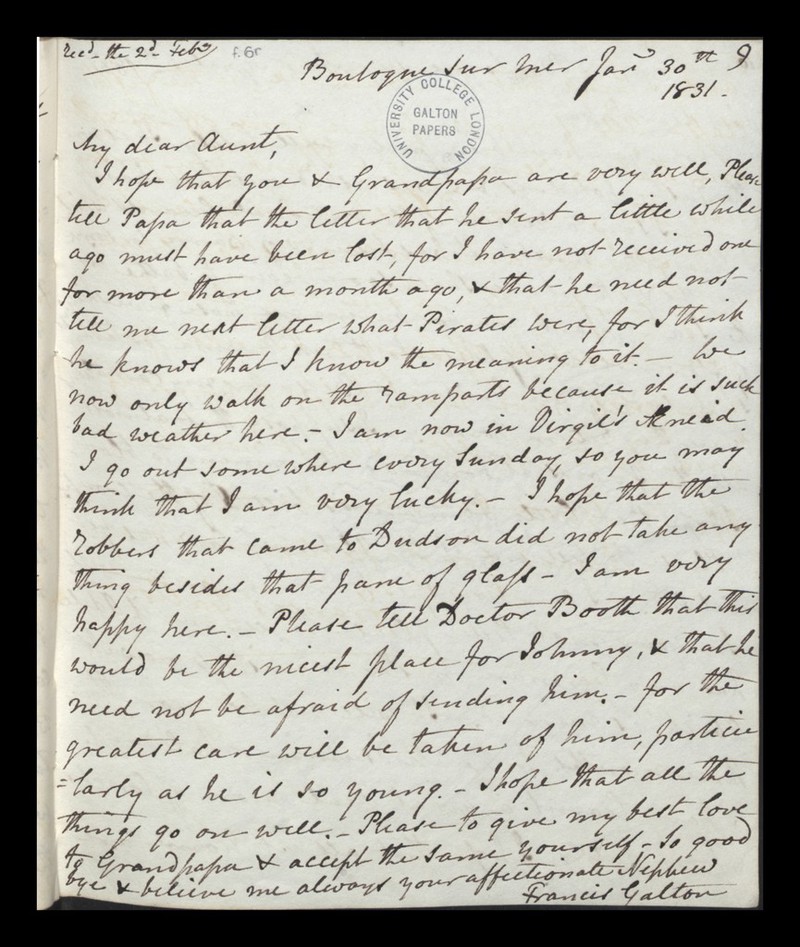 recd. the 2d. Feby
f. 6r
Boulogne sur mer Jany 30th
1831.
UNIVERSITY COLLEGE LONDON
GALTON
PAPERS
My dear Aunt,
I hope that you & Grandpapa are very well, Please
tell Papa that the letter that he sent a little while
ago must have been lost, for I have not received one
for more than a month ago, & that he need not
tell me next letter what Pirates were, for I think
he knows that I know the meaning to it. – We
now only walk on the ramparts because it is such
bad weather here. – I am now in Virgil's Æneid.
I go out some where every Sunday, so you may
think that I am very lucky. – I hope that the
robbers that came to Dudson did not take any
thing besides that pane of glass – I am very
happy here. – Please tell Doctor Booth that this
would be the nicest place for Johnny, & that he
need not be afraid of sending him. – for the
greatest care will be taken of him, particu
=larly as he is so young. – I hope that all the
things go on well. – Please to give my best love
to Grandpapa & accept the same yourself – So good
bye & believe me always your affectionate Nephew
Francis Galton